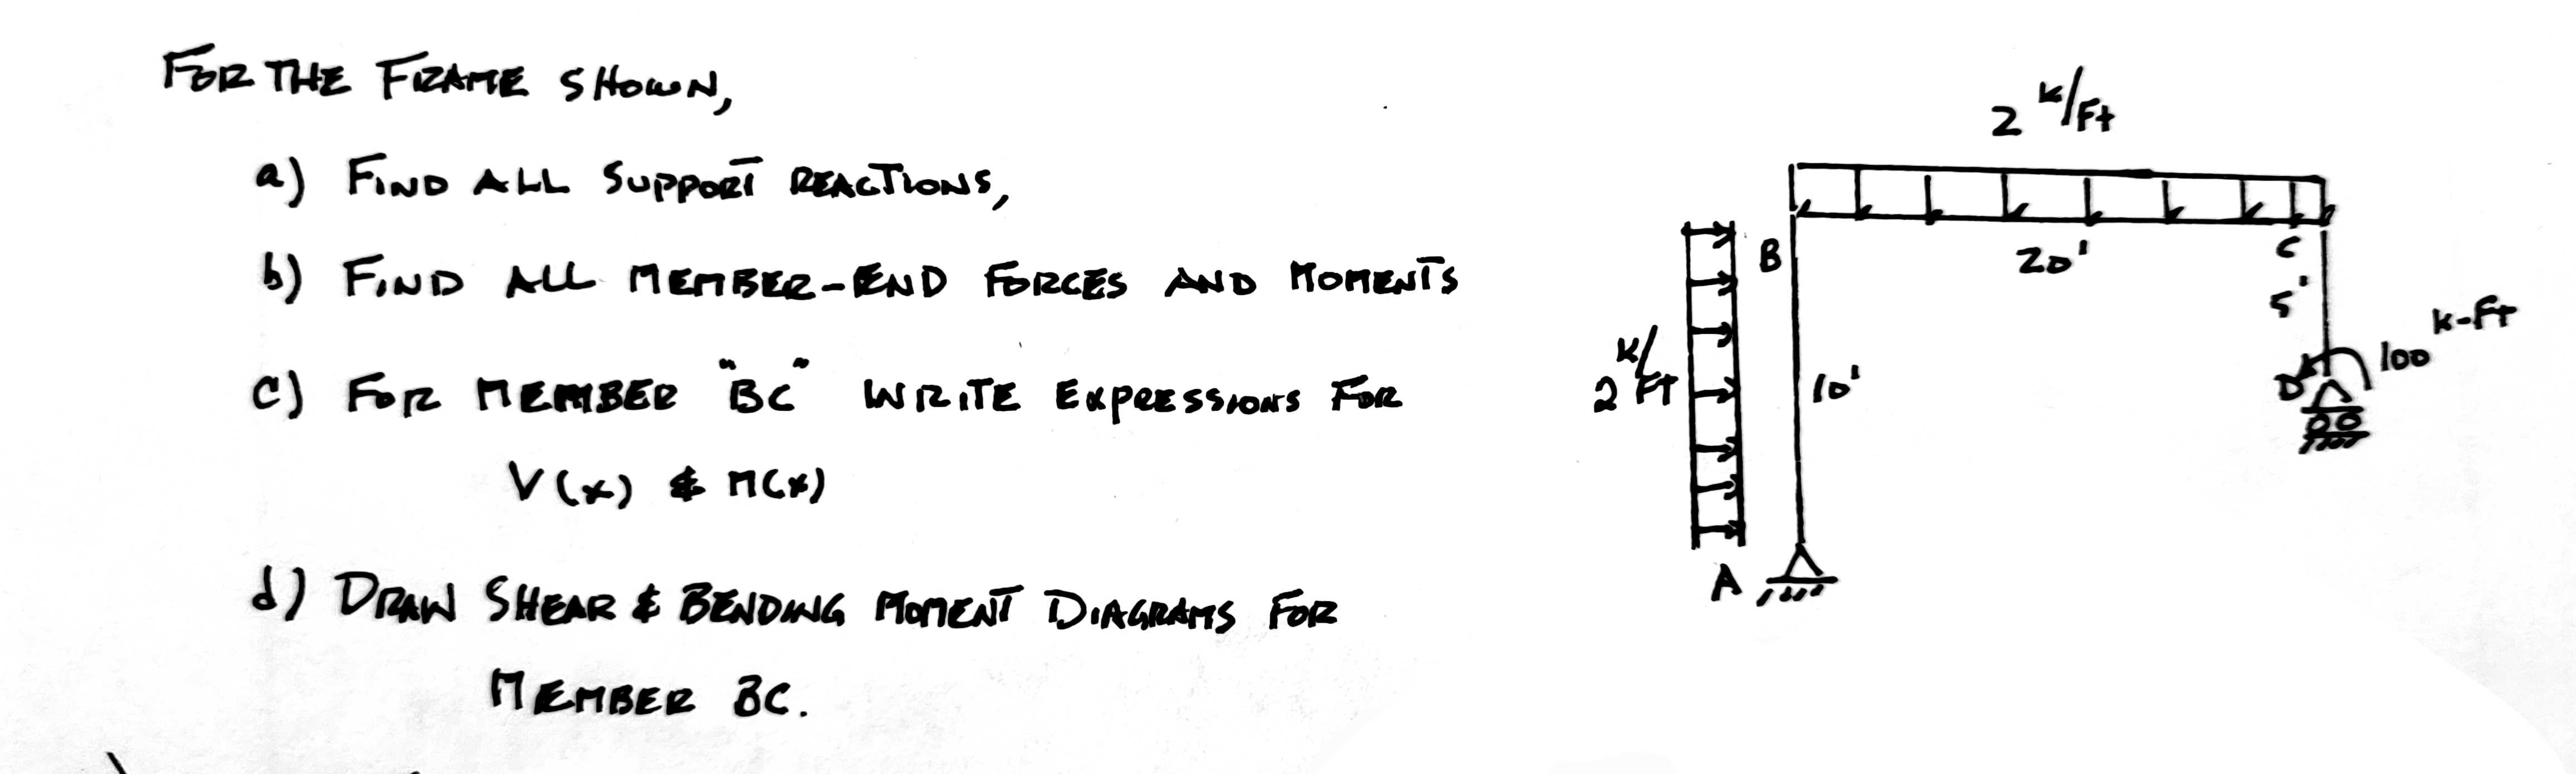 FOR THE FRAME SHOWN,
a) FIND ALL SUPPORT REACTIONS,
b) FIND ALL MEMBER-END FORCES AND MOMENTS
c) FOR MEMBER "BC" WRITE EXPRESSIONS FOR
V(x) & M(x)
d) DRAW SHEAR & BENDING MOMENT DIAGRAMS FOR
MEMBER BC.
2 K/Ft
B
20'
C
5'
K-Ft
100
D
2 K/FT
10'
A